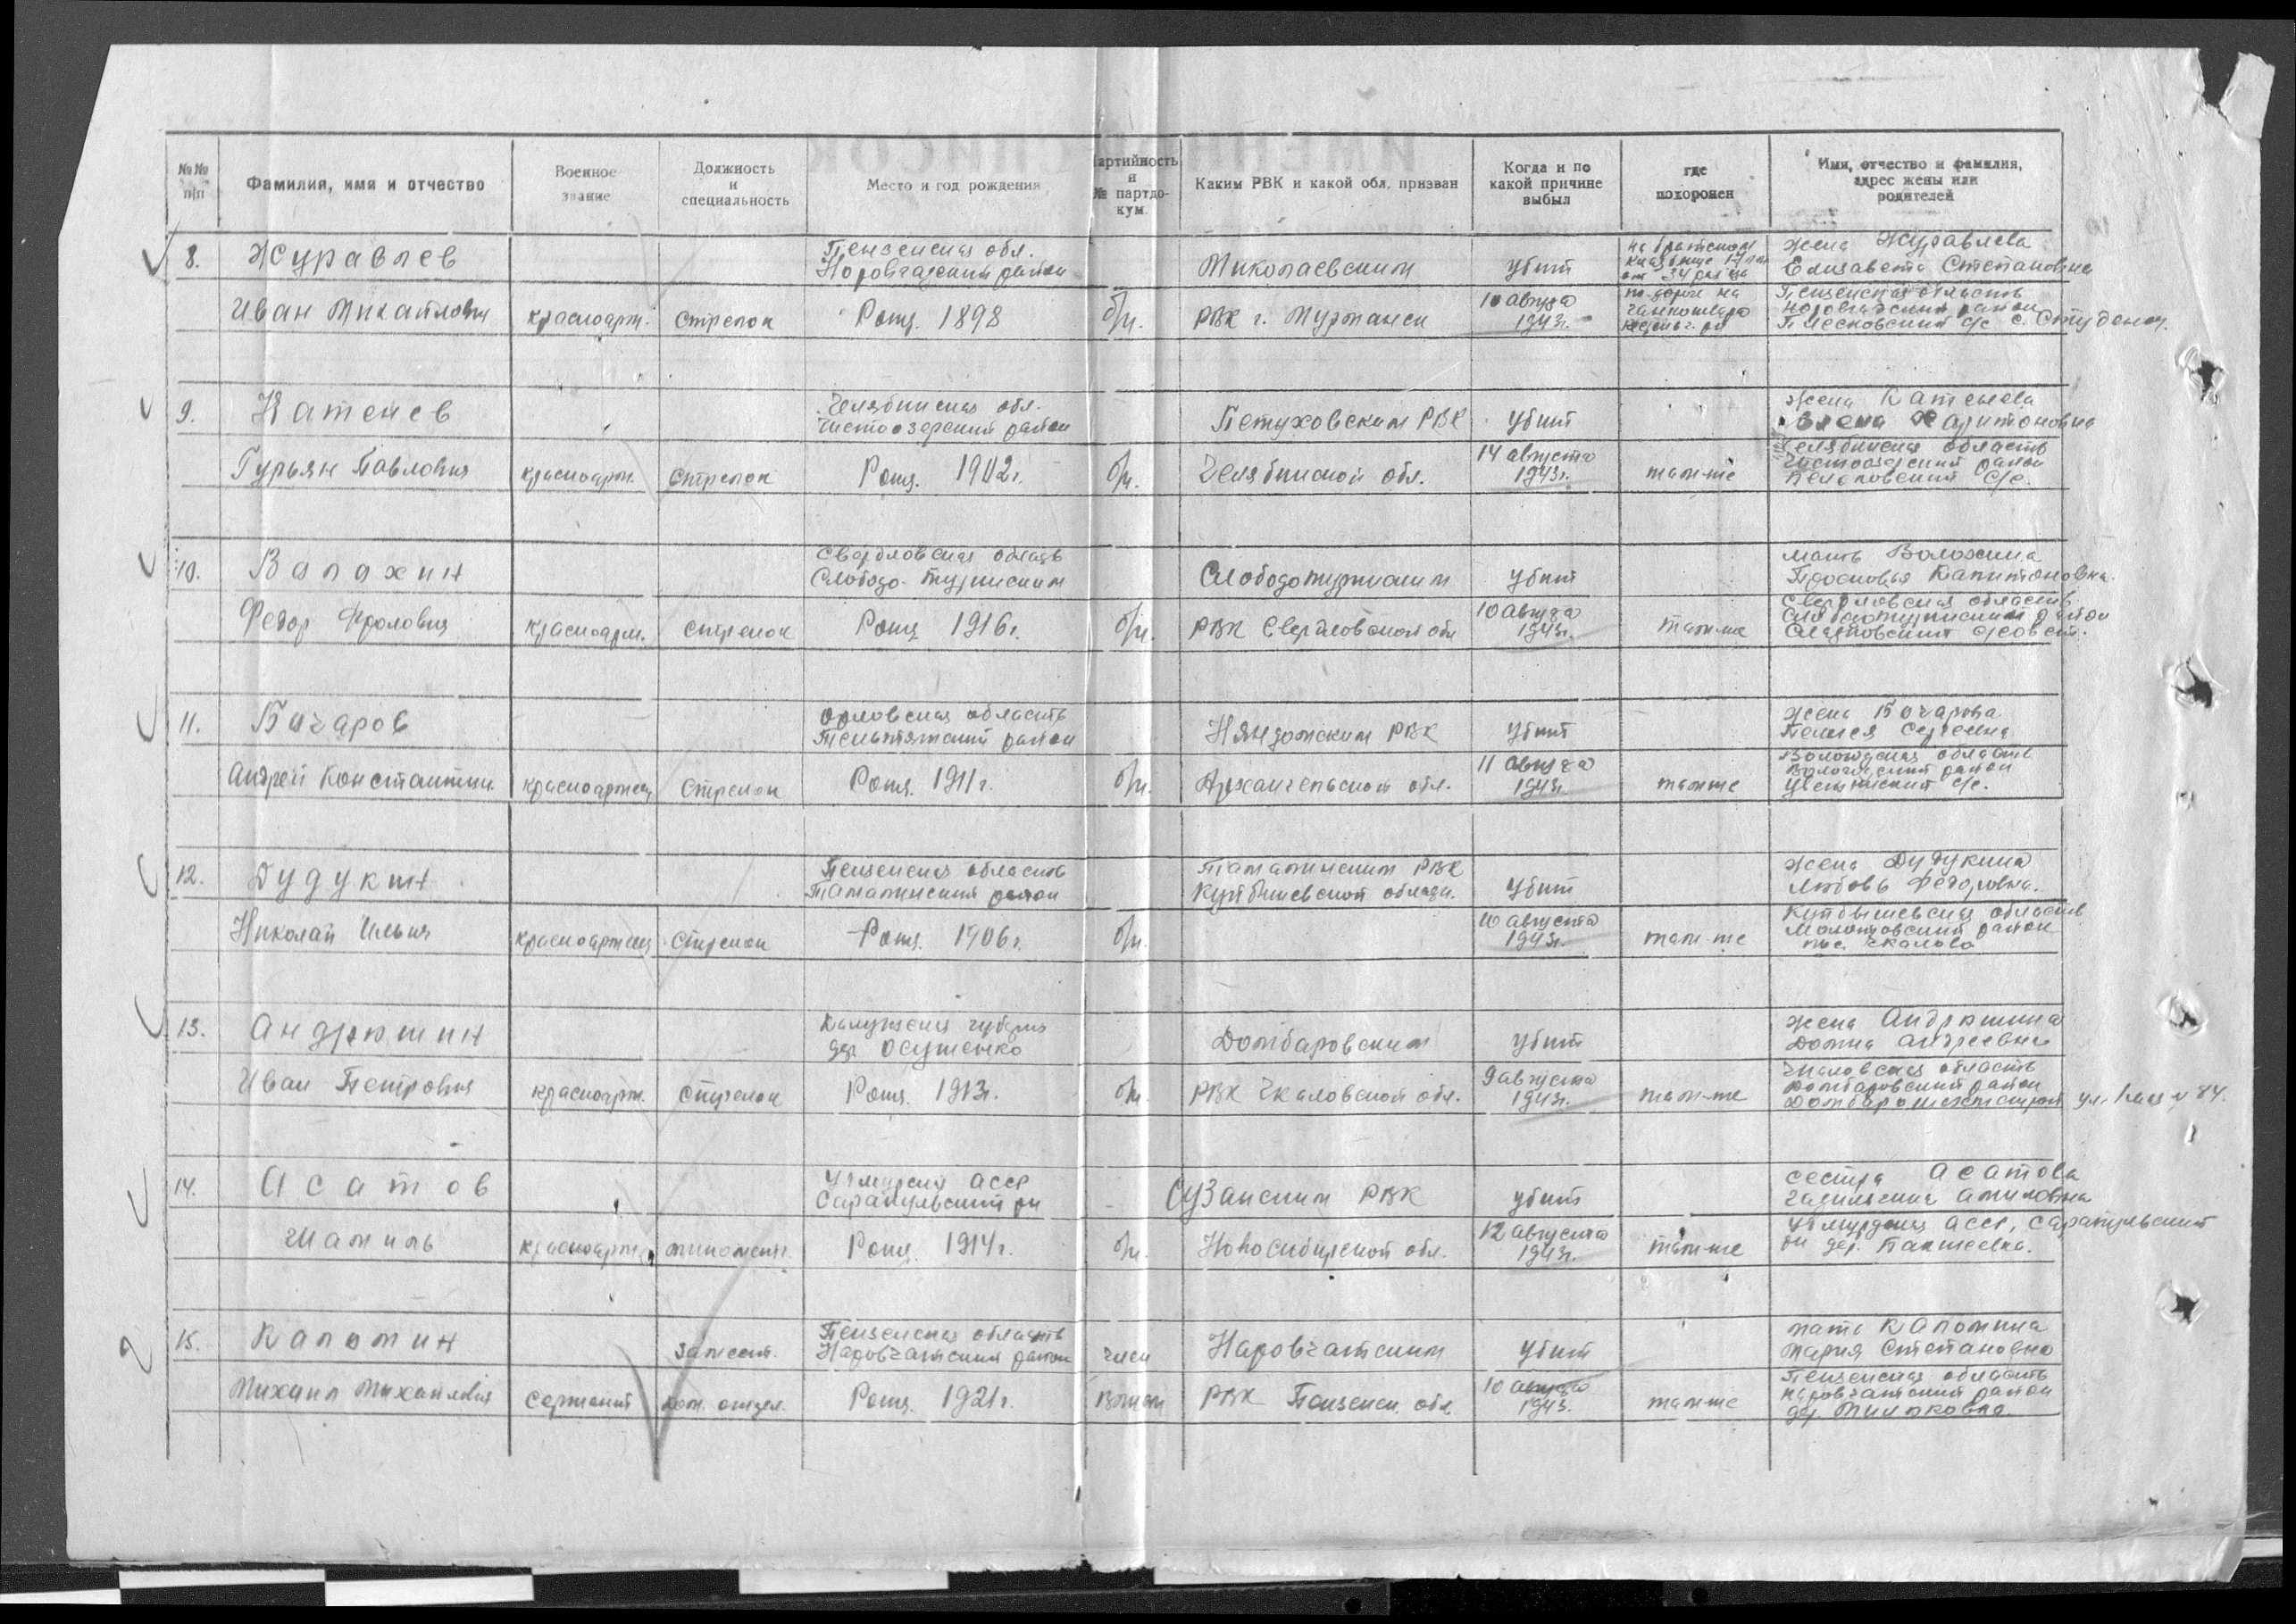 №№ п/п
Фамилия, имя и отчество
Военное звание
Должность и специальность
Место и год рождения
артийность и № партдо-кум.
Каким РВК и какой обл. призван
Когда и по какой причине выбыл
где похоронен
Имя, отчество и фамилия, адрес жены или родителей
8. Журавлев
Иван Михайлович
красноарм.
Стрелок
Пензенская обл.
Норовчадский район
Рожд. 1898
б/п.
Николаевским
РВК г. Мурманск
убит
10 августа
1943г.
на братском
жена Журавлева
Елизавета Степановна
Пензенская область
Норовчадский район
с/с с. Студенец.
9. Катенев
Гурьян Павлович
красноарм.
Стрелок
Челябинская обл.
Чистоозерский район
Рожд. 1902г.
б/п.
Петуховским РВК
Челябинской обл.
убит
14 августа
1943г.
там-же
жена Катенева
Елена Харитоновна
Челябинская область
Чистоозерский район
с/с.
10. Валахин
Федор Фролович
красноарм.
стрелок
Свердловская область
Слободо-Туринский
Рожд. 1916г.
б/п.
Слободотуринским
РВК Свердловской обл
убит
10 августа
1943г.
там-же
мать Волохина
Просковья Капитоновна.
Свердловская область
Слободотуринский район
11. Бачаров
Андрей Константин.
красноармеец
Стрелок
Орловская область
Рожд. 1911г.
б/п.
Няндомским РВК
Архангельской обл.
убит
11 августа
1943г.
там-же
жена Бочарова
Вологодская область
Вологодский район
с/с.
12. Дудукин
Николай Ильич
красноармеец
Стрелок
Пензенская область
Тамалинский район
Рожд. 1906г.
б/п.
Тамалинским РВК
Куйбышевской области.
убит
10 августа
1943г.
там-же
жена Дудукина
Любовь Федоровна.
Куйбышевская область
Молотовский район
пос. Чкалово
13. Андрюшин
Иван Петрович
красноарм.
Стрелок
Калужская губерния
дер. Осушенко
Рожд. 1913г.
б/п.
Домбаровским
РВК Чкаловской обл.
убит
9 августа
1943г.
там-же
жена Андрюшина
Домна Андреевна
Чкаловская область
Домбаровский район
14. Асатов
Шамиль
красноарм.
минометч.
Удмурская АССР
Сарапульский рн
Рожд. 1914г.
б/п.
Сузанским РВК
Новосибирской обл.
убит
12 августа
1943г.
там-же
сестра Асатова
Удмурдская АССР, Сарапульский
рн дер.
15. Каломин
Михаил Михайлович
Сержант
Замест.
ком. отдел.
Пензенская область
Наровчатский район
Рожд. 1921г.
член
ВЛКСМ
Наровчатским
РВК Пензенск. обл.
убит
10 августа
1943.
там-же
мать Каломина
Мария Степановна
Пензенская область
Наровчатский район